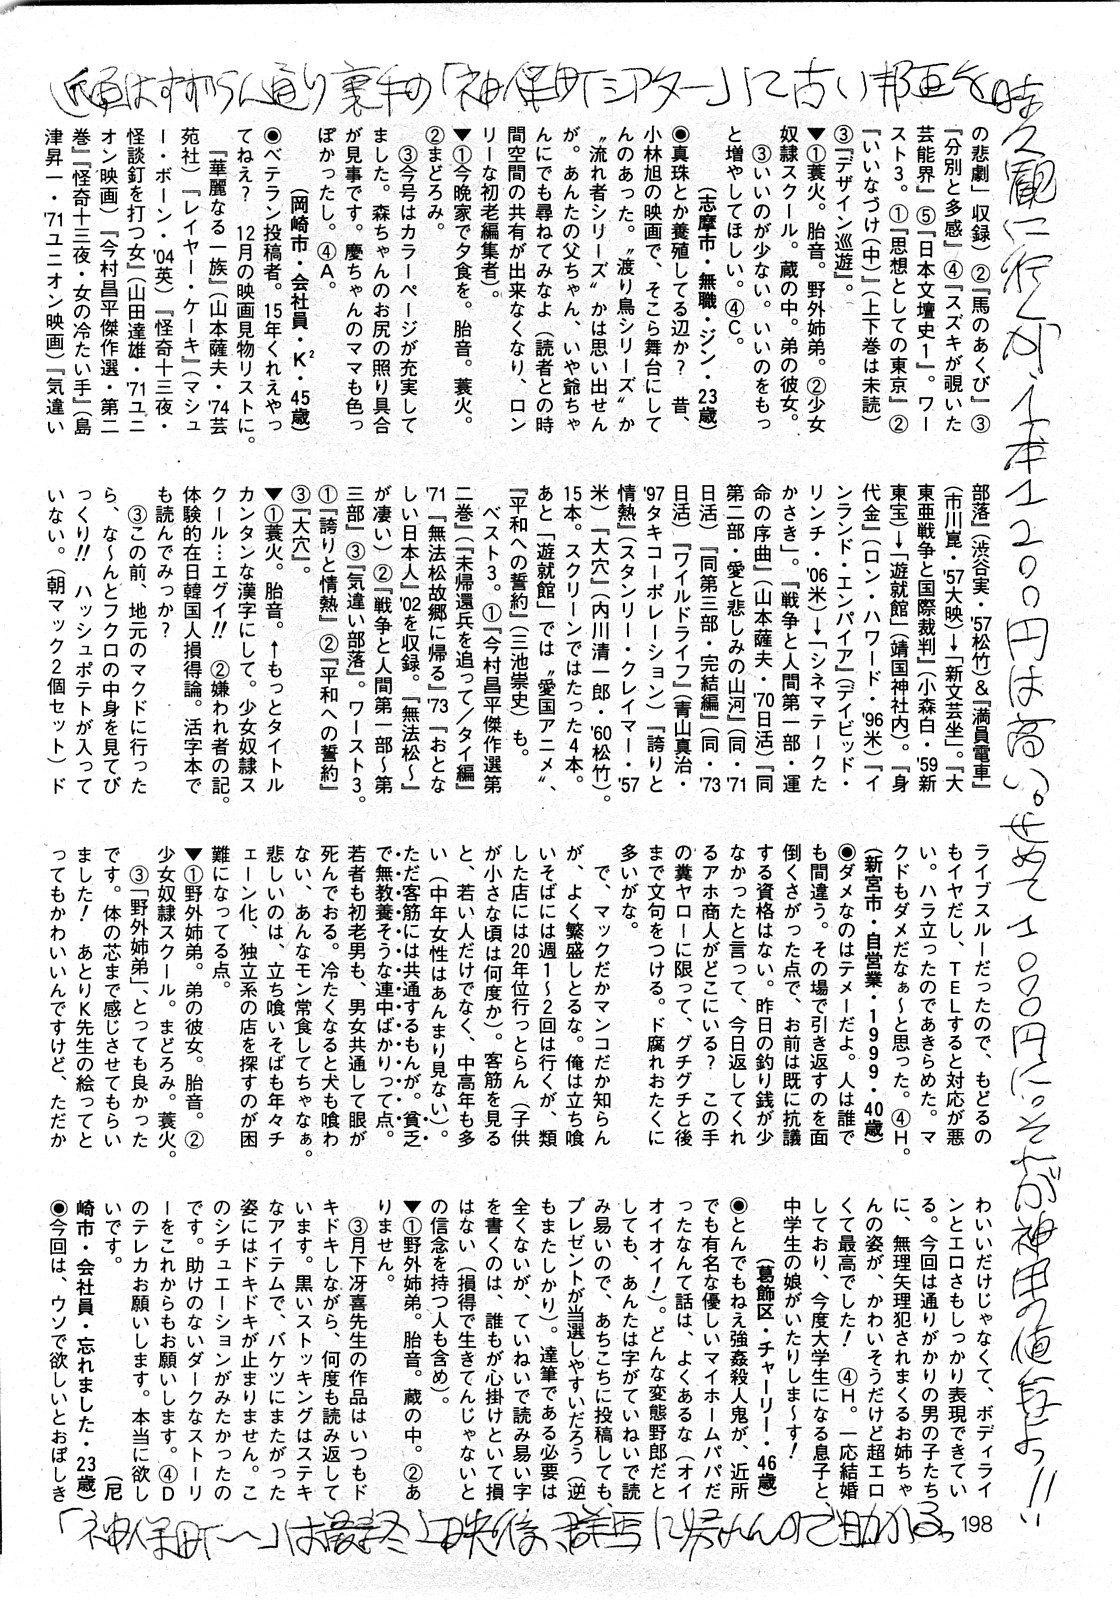 近頃はすずらん通り裏手の「神保町シアター」に古い邦画を
時々観に行くが、1本1200円は高い。せめて1000円に。それが神田の値段よっ!!
の悲劇」収録）②『馬のあくび』③
『分別と多感』④『スズキが覗いた
芸能界』⑤『日本文壇史1』。ワー
スト3。①『思想としての東京』②
『いいなづけ（中）』（上下巻は未読）
③『デザイン巡遊』。
▼①蓑火。胎音。野外姉弟。②少女
奴隷スクール。蔵の中。弟の彼女。
③いいのが少ない。いいのをもっ
と増やしてほしい。④C。
（志摩市・無職・ジン・23歳）
◉真珠とか養殖してる辺か？　昔、
小林旭の映画で、そこら舞台にして
んのあった。〝渡り鳥シリーズ〟か
〝流れ者シリーズ〟かは思い出せん
が。あんたの父ちゃん、いや爺ちゃ
んにでも尋ねてみなよ（読者との時
間空間の共有が出来なくなり、ロン
リーな初老編集者）。
▼①今晩家で夕食を。胎音。蓑火。
②まどろみ。
③今号はカラーページが充実して
ました。森ちゃんのお尻の照り具合
が見事です。慶ちゃんのママも色っ
ぽかったし。④A。
（岡崎市・会社員・K²・45歳）
◉ベテラン投稿者。15年くれえやっ
てねえ？　12月の映画見物リストに。
『華麗なる一族』（山本薩夫・'74芸
苑社）『レイヤー・ケーキ』（マシュ
ー・ボーン・'04英）『怪奇十三夜・
怪談釘を打つ女』（山田達雄・'71ユニ
オン映画）『今村昌平傑作選・第二
巻』『怪奇十三夜・女の冷たい手』（島
津昇一・'71ユニオン映画）『気違い
部落』（渋谷実・'57松竹）＆『満員電車』
（市川崑・'57大映）→「新文芸坐」。『大
東亜戦争と国際裁判』（小森白・'59新
東宝）→「遊就館」（靖国神社内）。『身
代金』（ロン・ハワード・'96米）『イ
ンランド・エンパイア』（デイビッド・
リンチ・'06米）→「シネマテークた
かさき」。『戦争と人間第一部・運
命の序曲』（山本薩夫・'70日活）『同
第二部・愛と悲しみの山河』（同・'71
日活）『同第三部・完結編』（同・'73
日活）『ワイルドライフ』（青山真治・
'97タキコーポレーション）『誇りと
情熱』（スタンリー・クレイマー・'57
米）『大穴』（内川清一郎・'60松竹）。
15本。スクリーンではたった4本。
あと「遊就館」では〝愛国アニメ〟、
『平和への誓約』（三池崇史）も。
ベスト3。①『今村昌平傑作選第
二巻』（『未帰還兵を追って／タイ編』
'71『無法松故郷に帰る』'73『おとな
しい日本人』'02を収録。『無法松～』
が凄い）②『戦争と人間第一部～第
三部』③『気違い部落』。ワースト3。
①『誇りと情熱』②『平和への誓約』
③『大穴』。
▼①蓑火。胎音。↑もっとタイトル
カンタンな漢字にして。少女奴隷ス
クール…エグイ!!　②嫌われ者の記。
体験的在日韓国人損得論。活字本で
も読んでみっか？
③この前、地元のマクドに行った
ら、な～んとフクロの中身を見てび
っくり!!　ハッシュポテトが入って
いない。（朝マック2個セット）ド
ライブスルーだったので、もどるの
もイヤだし、TELすると対応が悪
い。ハラ立ったのであきらめた。マ
クドもダメだなぁ～と思った。④H。
（新宮市・自営業・1999・40歳）
◉ダメなのはテメーだよ。人は誰で
も間違う。その場で引き返すのを面
倒くさがった点で、お前は既に抗議
する資格はない。昨日の釣り銭が少
なかったと言って、今日返してくれ
るアホ商人がどこにいる？　この手
の糞ヤローに限って、グチグチと後
まで文句をつける。ド腐れおたくに
多いがな。
で、マックだかマンコだか知らん
が、よく繁盛しとるな。俺は立ち喰
いそばには週1～2回は行くが、類
した店には20年位行っとらん（子供
が小さな頃は何度か）。客筋を見る
と、若い人だけでなく、中高年も多
い（中年女性はあんまり見ない）。
ただ客筋には共通するもんが。貧乏
で無教養そうな連中ばかりって点。
若者も初老男も、男女共通して眼が
死んでおる。冷たくなると犬も喰わ
ない、あんなモン常食してちゃなぁ。
悲しいのは、立ち喰いそばも年々チ
ェーン化、独立系の店を探すのが困
難になってる点。
▼①野外姉弟。弟の彼女。胎音。②
少女奴隷スクール。まどろみ。蓑火。
③「野外姉弟」、とっても良かった
です。体の芯まで感じさせてもらい
ました！　あとりK先生の絵ってと
ってもかわいいんですけど、ただか
わいいだけじゃなくて、ボディライ
ンとエロさもしっかり表現できてい
る。今回は通りがかりの男の子たち
に、無理矢理犯されまくるお姉ちゃ
んの姿が、かわいそうだけど超エロ
くて最高でした！　④H。一応結婚
しており、今度大学生になる息子と
中学生の娘がいたりしま～す！
（葛飾区・チャーリー・46歳）
◉とんでもねえ強姦殺人鬼が、近所
でも有名な優しいマイホームパパだ
ったなんて話は、よくあるな（オイ
オイオイ！）。どんな変態野郎だと
しても、あんたは字がていねいで読
み易いので、あちこちに投稿しても
プレゼントが当選しやすいだろう（逆
もまたしかり）。達筆である必要は
全くないが、ていねいで読み易い字
を書くのは、誰もが心掛けといて損
はない（損得で生きてんじゃないと
の信念を持つ人も含め）。
▼①野外姉弟。胎音。蔵の中。②あ
りません。
③月下冴喜先生の作品はいつもド
キドキしながら、何度も読み返して
います。黒いストッキングはステキ
なアイテムで、バケツにまたがった
姿にはドキドキが止まりません。こ
のシチュエーションがみたかったの
です。助けのないダークなストーリ
ーをこれからもお願いします。④D
のテレカお願いします。本当に欲し
いです。　（尼
崎市・会社員・忘れました・23歳）
◉今回は、ウソで欲しいとおぼしき
「神保町～」は最終上映後、群馬に帰れんので助かる。
198